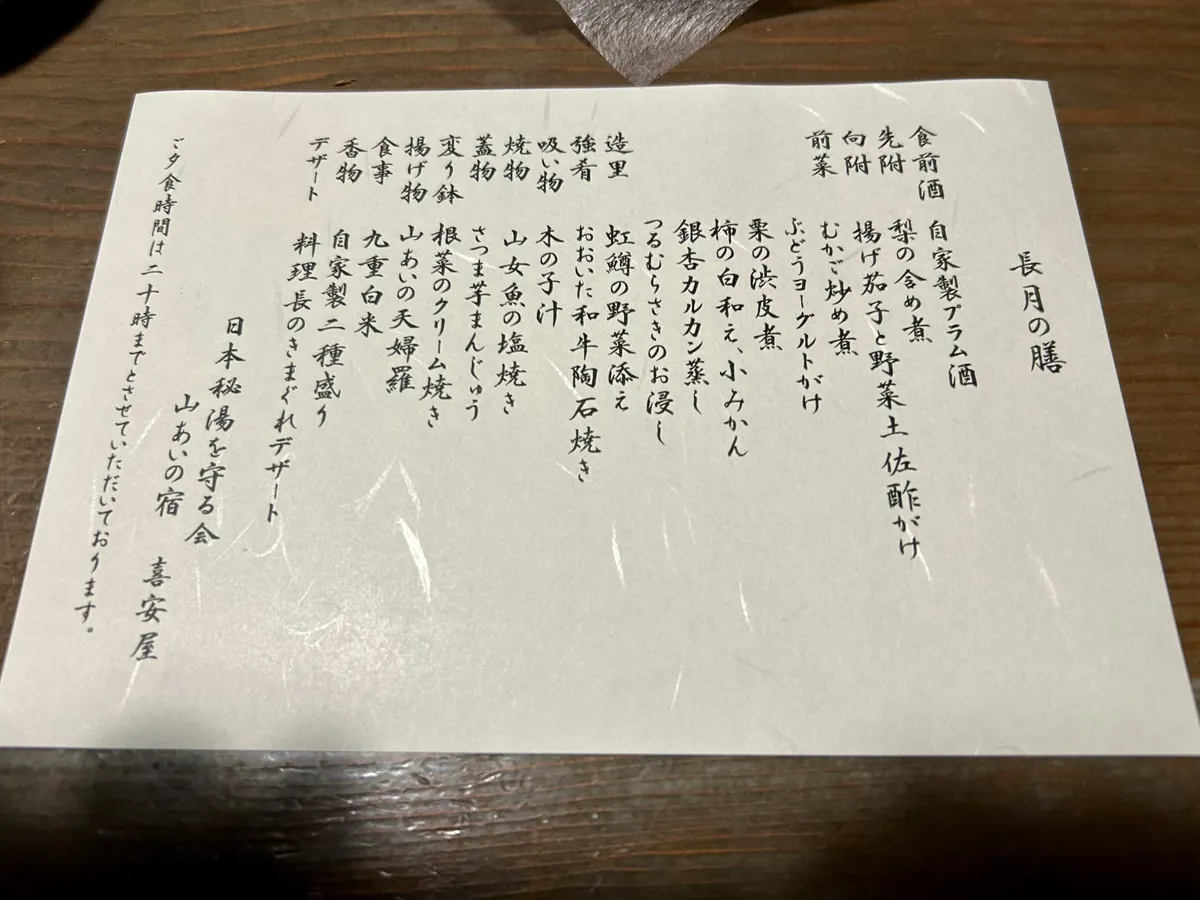 長月の膳
食前酒 自家製プラム酒
先附 梨の含め煮
向附 揚げ茄子と野菜土佐酢がけ
前菜 むかご炒め煮
ぶどうヨーグルトがけ
栗の渋皮煮
柿の白和え、小みかん
銀杏カルカン蒸し
つるむらさきのお浸し
造里 虹鱒の野菜添え
強肴 おおいた和牛陶石焼き
吸い物 木の子汁
焼物 山女魚の塩焼き
蓋物 さつま芋まんじゅう
変り鉢 根菜のクリーム焼き
揚げ物 山あいの天婦羅
食事 九重白米
香物 自家製二種盛り
デザート 料理長のきまぐれデザート
日本秘湯を守る会
山あいの宿 喜安屋
ご夕食時間は二十時までとさせていただいております。